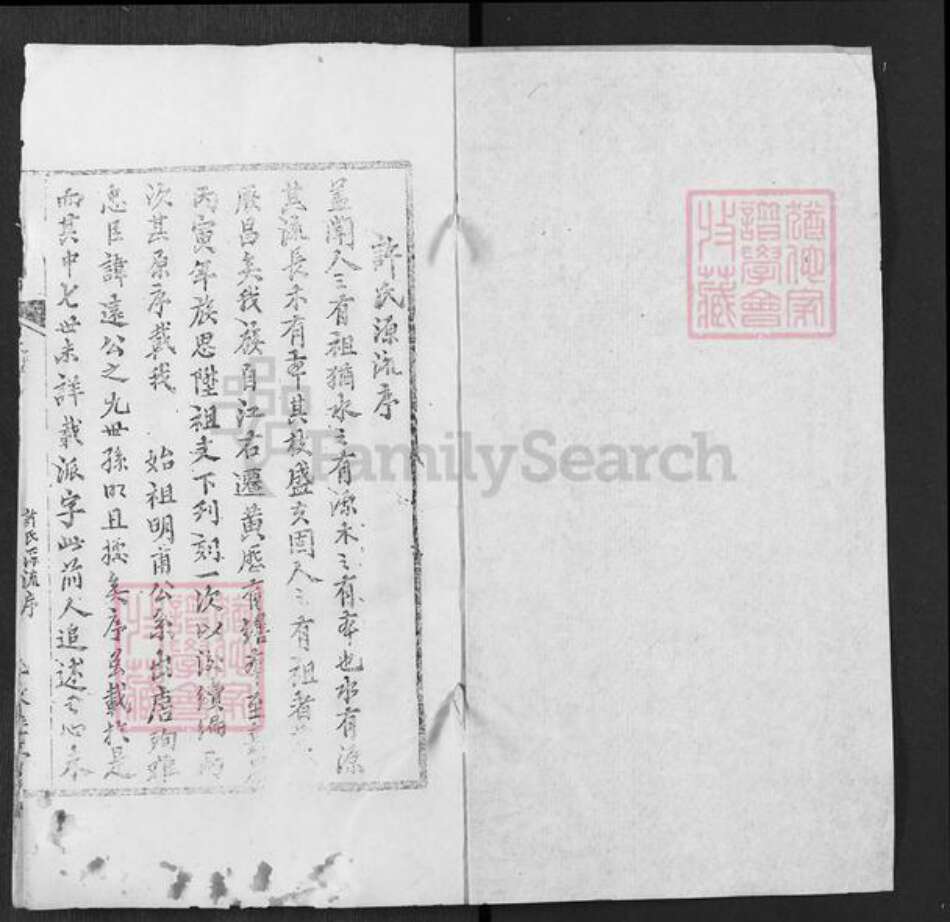 許氏源流序
盖聞人之有祖猶水之有源木之有本也水有源
其流長木有本其枝盛亥固人之有祖者
厥昌矣我族自江右遷黄歷有譜
丙寅年族思陞祖支下列刻一次以
次其原序載我 始祖明甫公系出唐殉难
忠臣諱遠公之九世孫明且據矣序至載於是
而其中七世未詳載派字此前人追述之心
許氏源流序
FamilySearch
譜學會
收藏